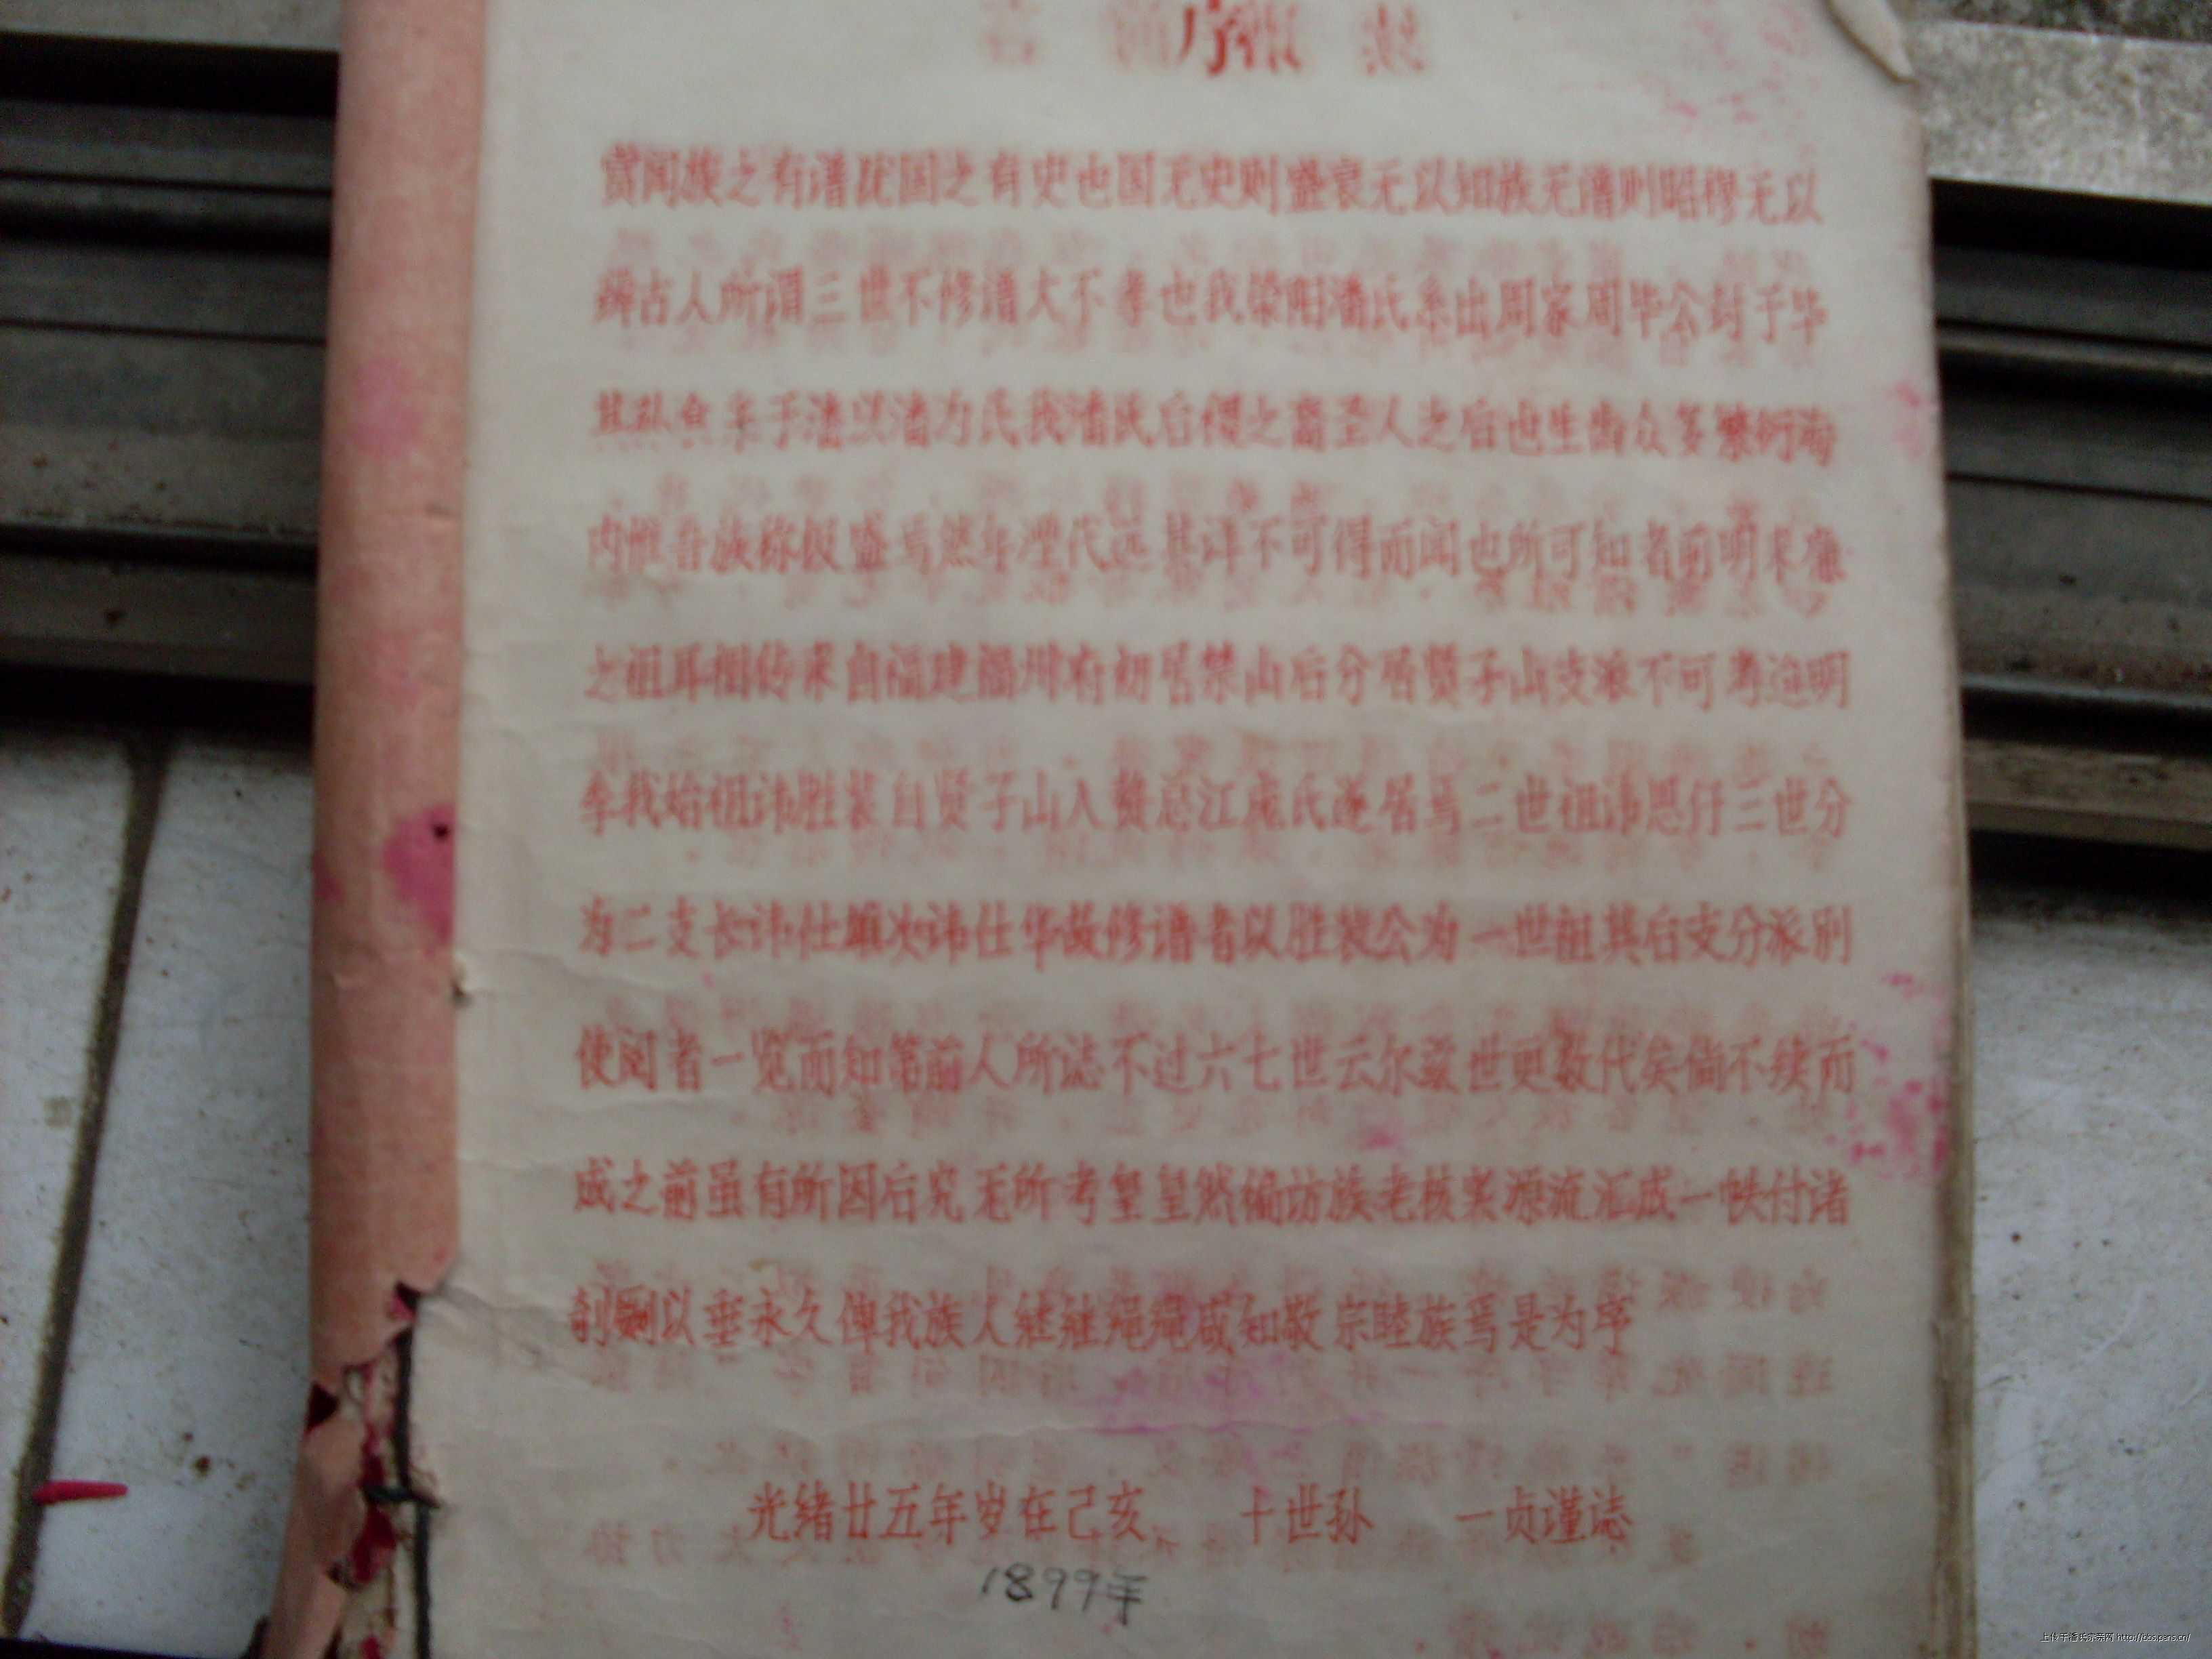 序
尝闻族之有谱犹国之有史也国无史则盛衰无以知族无谱则昭穆无以
辨古人所谓三世不修谱大不孝也我荥阳潘氏系出周家周毕公封于毕
其孙食采于潘以潘为氏我潘氏后稷之裔圣人之后也生齿众多繁衍海
内惟吾族称极盛焉然年湮代远其详不可得而闻也所可知者前明来廉
之祖耳相传来自福建福州府初居禁山后分居贤子山支派不可考迨明
季我始祖讳胜装自贤子山入赘总江庞氏遂居焉二世祖讳思仔三世分
为二支长讳仕雄次讳仕华故修谱者以胜装公为一世祖其后支分派别
使阅者一览而知第前人所誌不过六七世云尔兹世更数代矣倘不续而
成之前虽有所因后究无所考皇皇然偏访族老核实源流汇成一帙付诸
剞劂以垂永久俾我族人继继绳绳咸知敬宗睦族焉是为序
光绪廿五年岁在己亥 十世孙 一贞谨誌
1899年
上传于潘氏宗亲网 http://bbs.pans.cn/